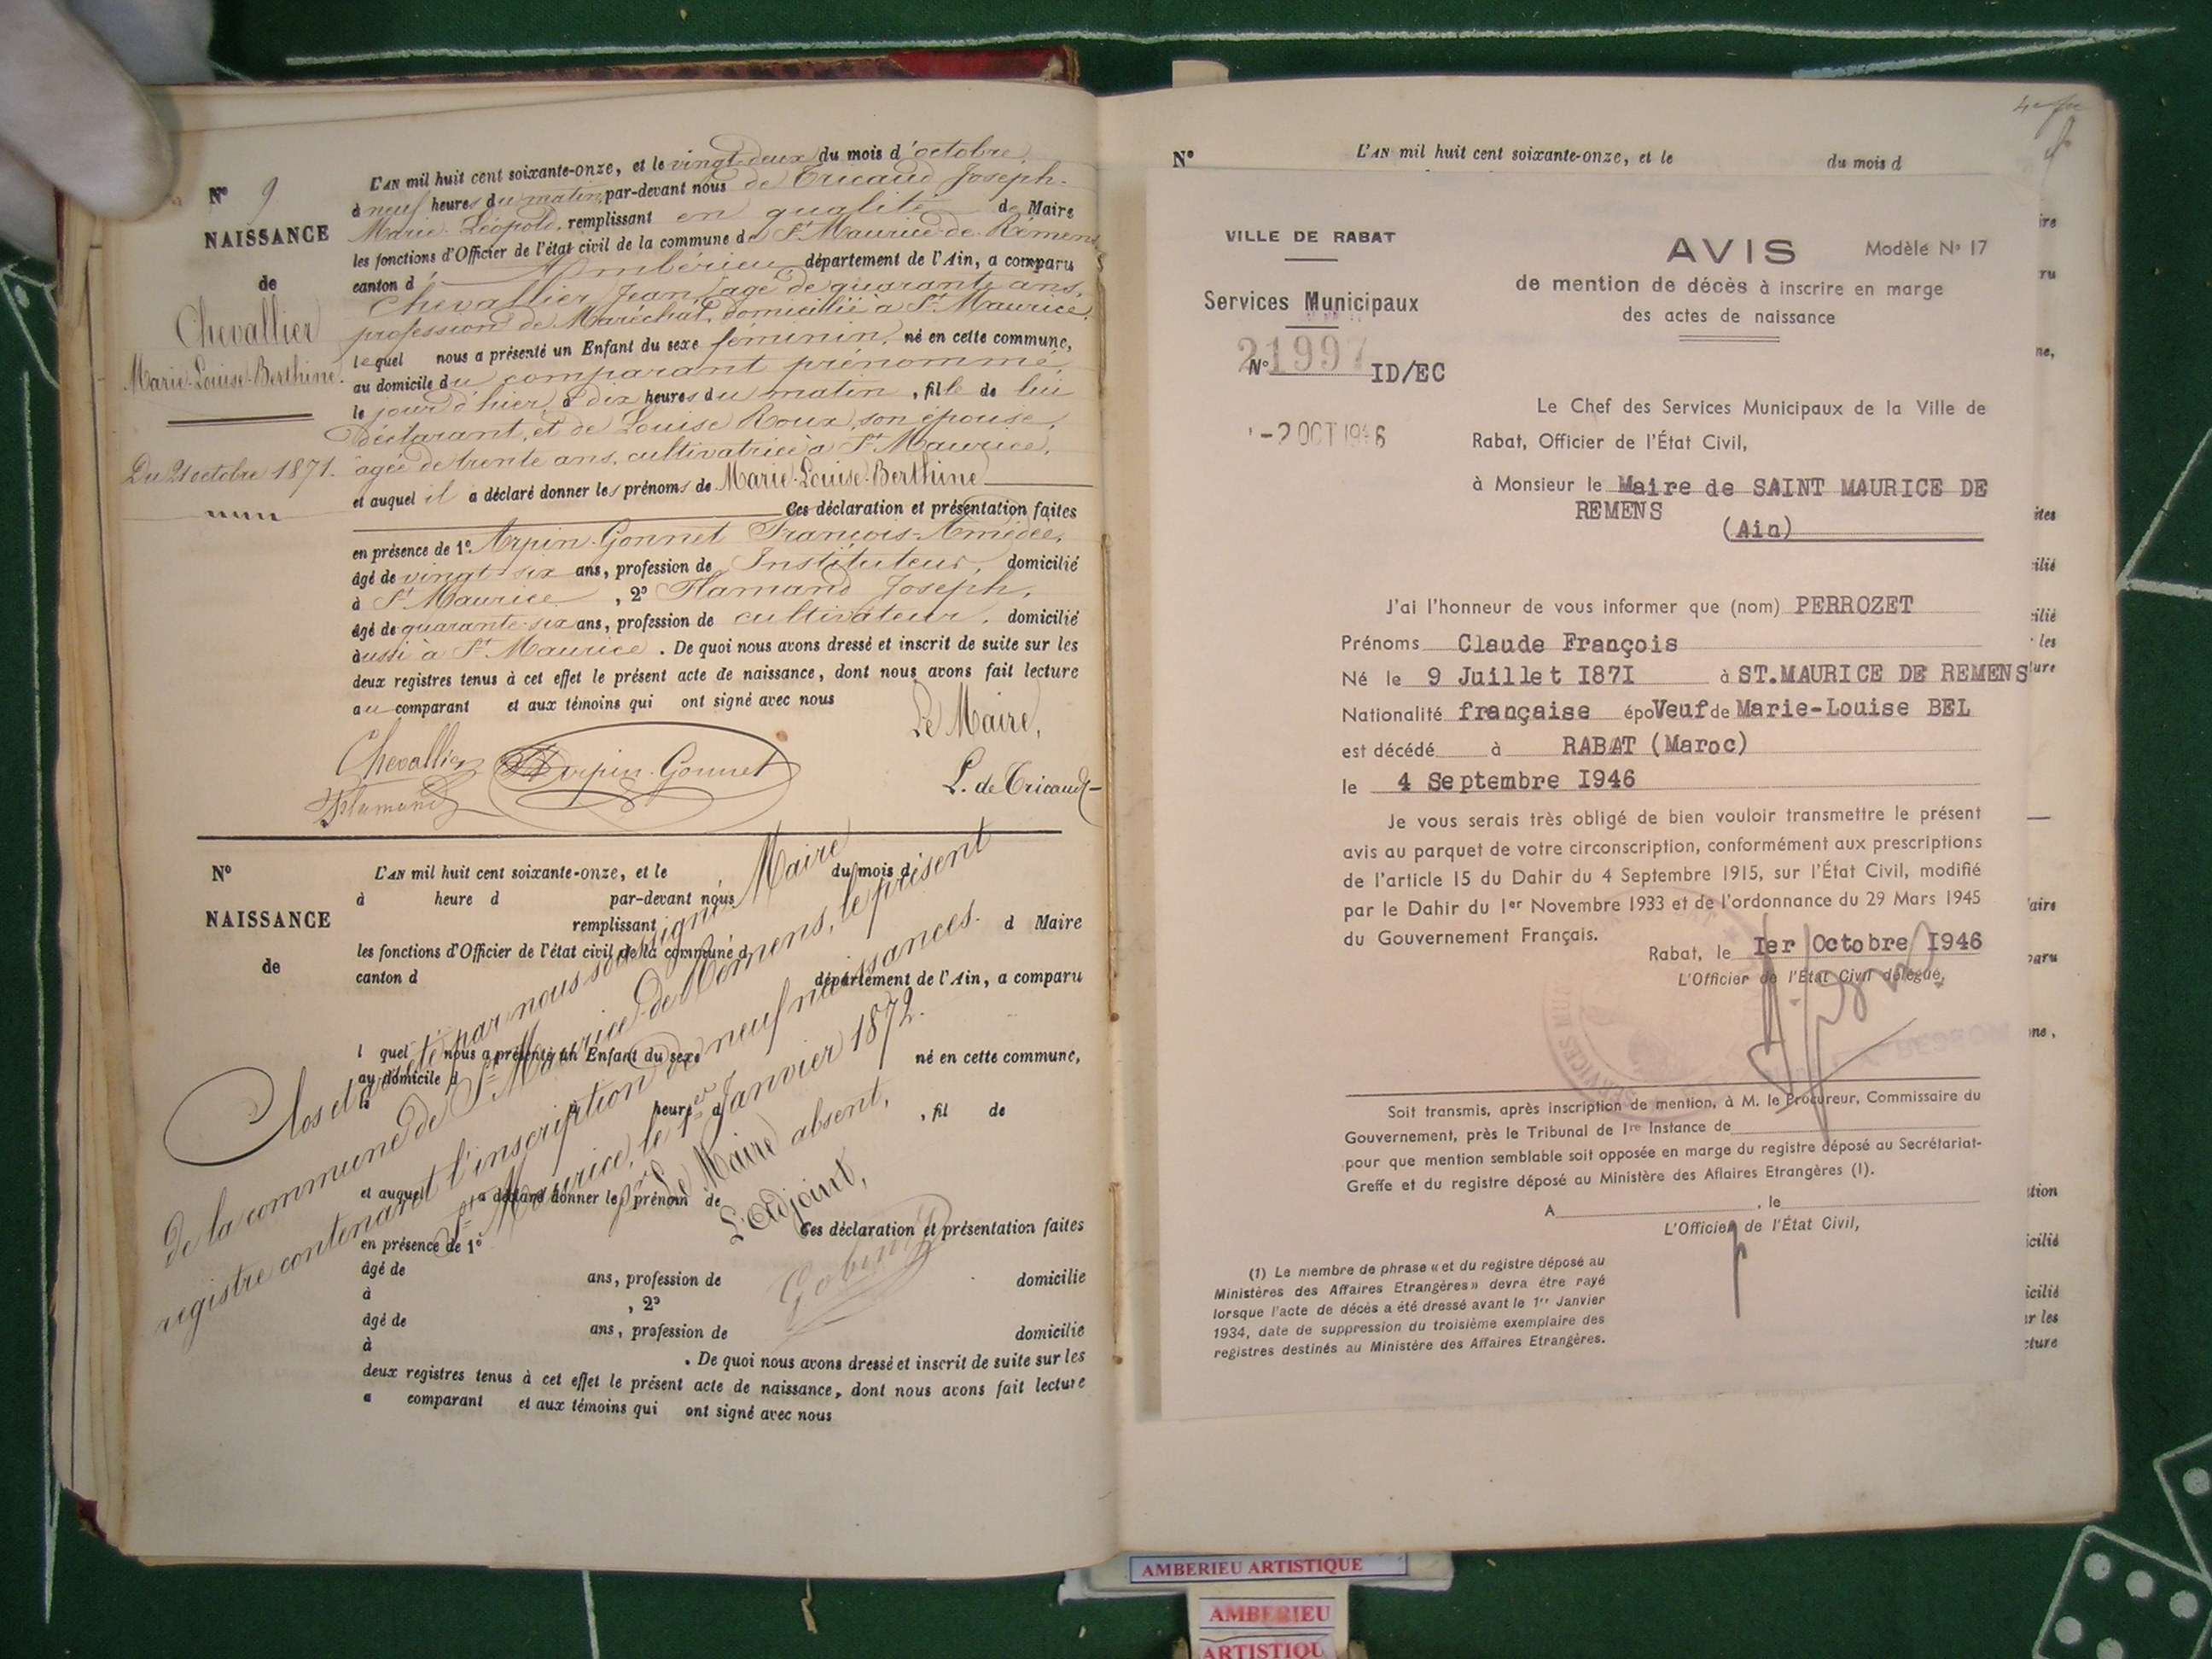 N° 9
NAISSANCE
de
Chevallier
Marie-Louise-Berthine.
Du 21 octobre 1871.
L'AN mil huit cent soixante-onze, et le vingt-deux du mois d'octobre,
à neuf heures du matin, par-devant nous de Tricaud Joseph-
Marie-Léopold, remplissant en qualité de Maire
les fonctions d'Officier de l'état civil de la commune de St Maurice-de-Rémens
canton d'Ambérieu département de l'Ain, a comparu
Chevallier Jean, âgé de quarante ans,
profession de Maréchal, domicilié à St Maurice,
lequel nous a présenté un Enfant du sexe féminin, né en cette commune,
au domicile du comparant prénommé
le jour d'hier, à dix heures du matin, fille de lui
déclarant, et de Louise Roux, son épouse,
âgée de trente ans, cultivatrice à St Maurice,
et auquel il a déclaré donner les prénoms de Marie-Louise-Berthine
Ces déclaration et présentation faites
en présence de 1° Arpin-Gonnet François-Amédée,
âgé de vingt-six ans, profession de Instituteur, domicilié
à St Maurice, 2° Flamand Joseph,
âgé de quarante-six ans, profession de cultivateur, domicilié
aussi à St Maurice. De quoi nous avons dressé et inscrit de suite sur les
deux registres tenus à cet effet le présent acte de naissance, dont nous avons fait lecture
au comparant et aux témoins qui ont signé avec nous
Le Maire,
Chevallier Arpin-Gonnet
Flamand L. de Tricaud
N°
NAISSANCE
de
L'AN mil huit cent soixante-onze, et le du mois d
à heure d par-devant nous
remplissant d Maire
les fonctions d'Officier de l'état civil de la commune d
canton d département de l'Ain, a comparu
l quel nous a présenté un Enfant du sexe né en cette commune,
au domicile d
le à heure d , fil de
et auquel a déclaré donner le prénom de
Ces déclaration et présentation faites
en présence de 1°
âgé de ans, profession de domicilie
à , 2°
âgé de ans, profession de domicilie
à . De quoi nous avons dressé et inscrit de suite sur les
deux registres tenus à cet effet le présent acte de naissance, dont nous avons fait lecture
a comparant et aux témoins qui ont signé avec nous
Clos et arrêté par nous soussigné Maire
de la commune de St Maurice-de-Rémens, le présent
registre contenant l'inscription de neuf naissances.
St Maurice, le 1er Janvier 1872.
pr Le Maire absent,
L'Adjoint,
N° L'AN mil huit cent soixante-onze, et le du mois d
VILLE DE RABAT
Services Municipaux
N° 21997 ID/EC
-2 OCT 1946
AVIS Modèle N° 17
de mention de décès à inscrire en marge
des actes de naissance
Le Chef des Services Municipaux de la Ville de
Rabat, Officier de l'État Civil,
à Monsieur le Maire de SAINT MAURICE DE
REMENS
(Ain)
J'ai l'honneur de vous informer que (nom) PERROZET
Prénoms Claude François
Né le 9 Juillet I87I à ST.MAURICE DE REMENS
Nationalité française épo Veuf de Marie-Louise BEL
est décédé à RABAT (Maroc)
le 4 Septembre I946
Je vous serais très obligé de bien vouloir transmettre le présent
avis au parquet de votre circonscription, conformément aux prescriptions
de l'article 15 du Dahir du 4 Septembre 1915, sur l'État Civil, modifié
par le Dahir du 1er Novembre 1933 et de l'ordonnance du 29 Mars 1945
du Gouvernement Français.
Rabat, le Ier Octobre I946
L'Officier de l'État Civil délégué,
Soit transmis, après inscription de mention, à M. le Procureur, Commissaire du
Gouvernement, près le Tribunal de Ire Instance de
pour que mention semblable soit opposée en marge du registre déposé au Secrétariat-
Greffe et du registre déposé au Ministère des Affaires Etrangères (I).
A , le
L'Officier de l'État Civil,
(1) Le membre de phrase « et du registre déposé au
Ministères des Affaires Etrangères » devra être rayé
lorsque l'acte de décés a été dressé avant le 1er Janvier
1934, date de suppression du troisième exemplaire des
registres destinés au Ministère des Affaires Etrangères.
AMBERIEU ARTISTIQUE
AMBERIEU
ARTISTIQU